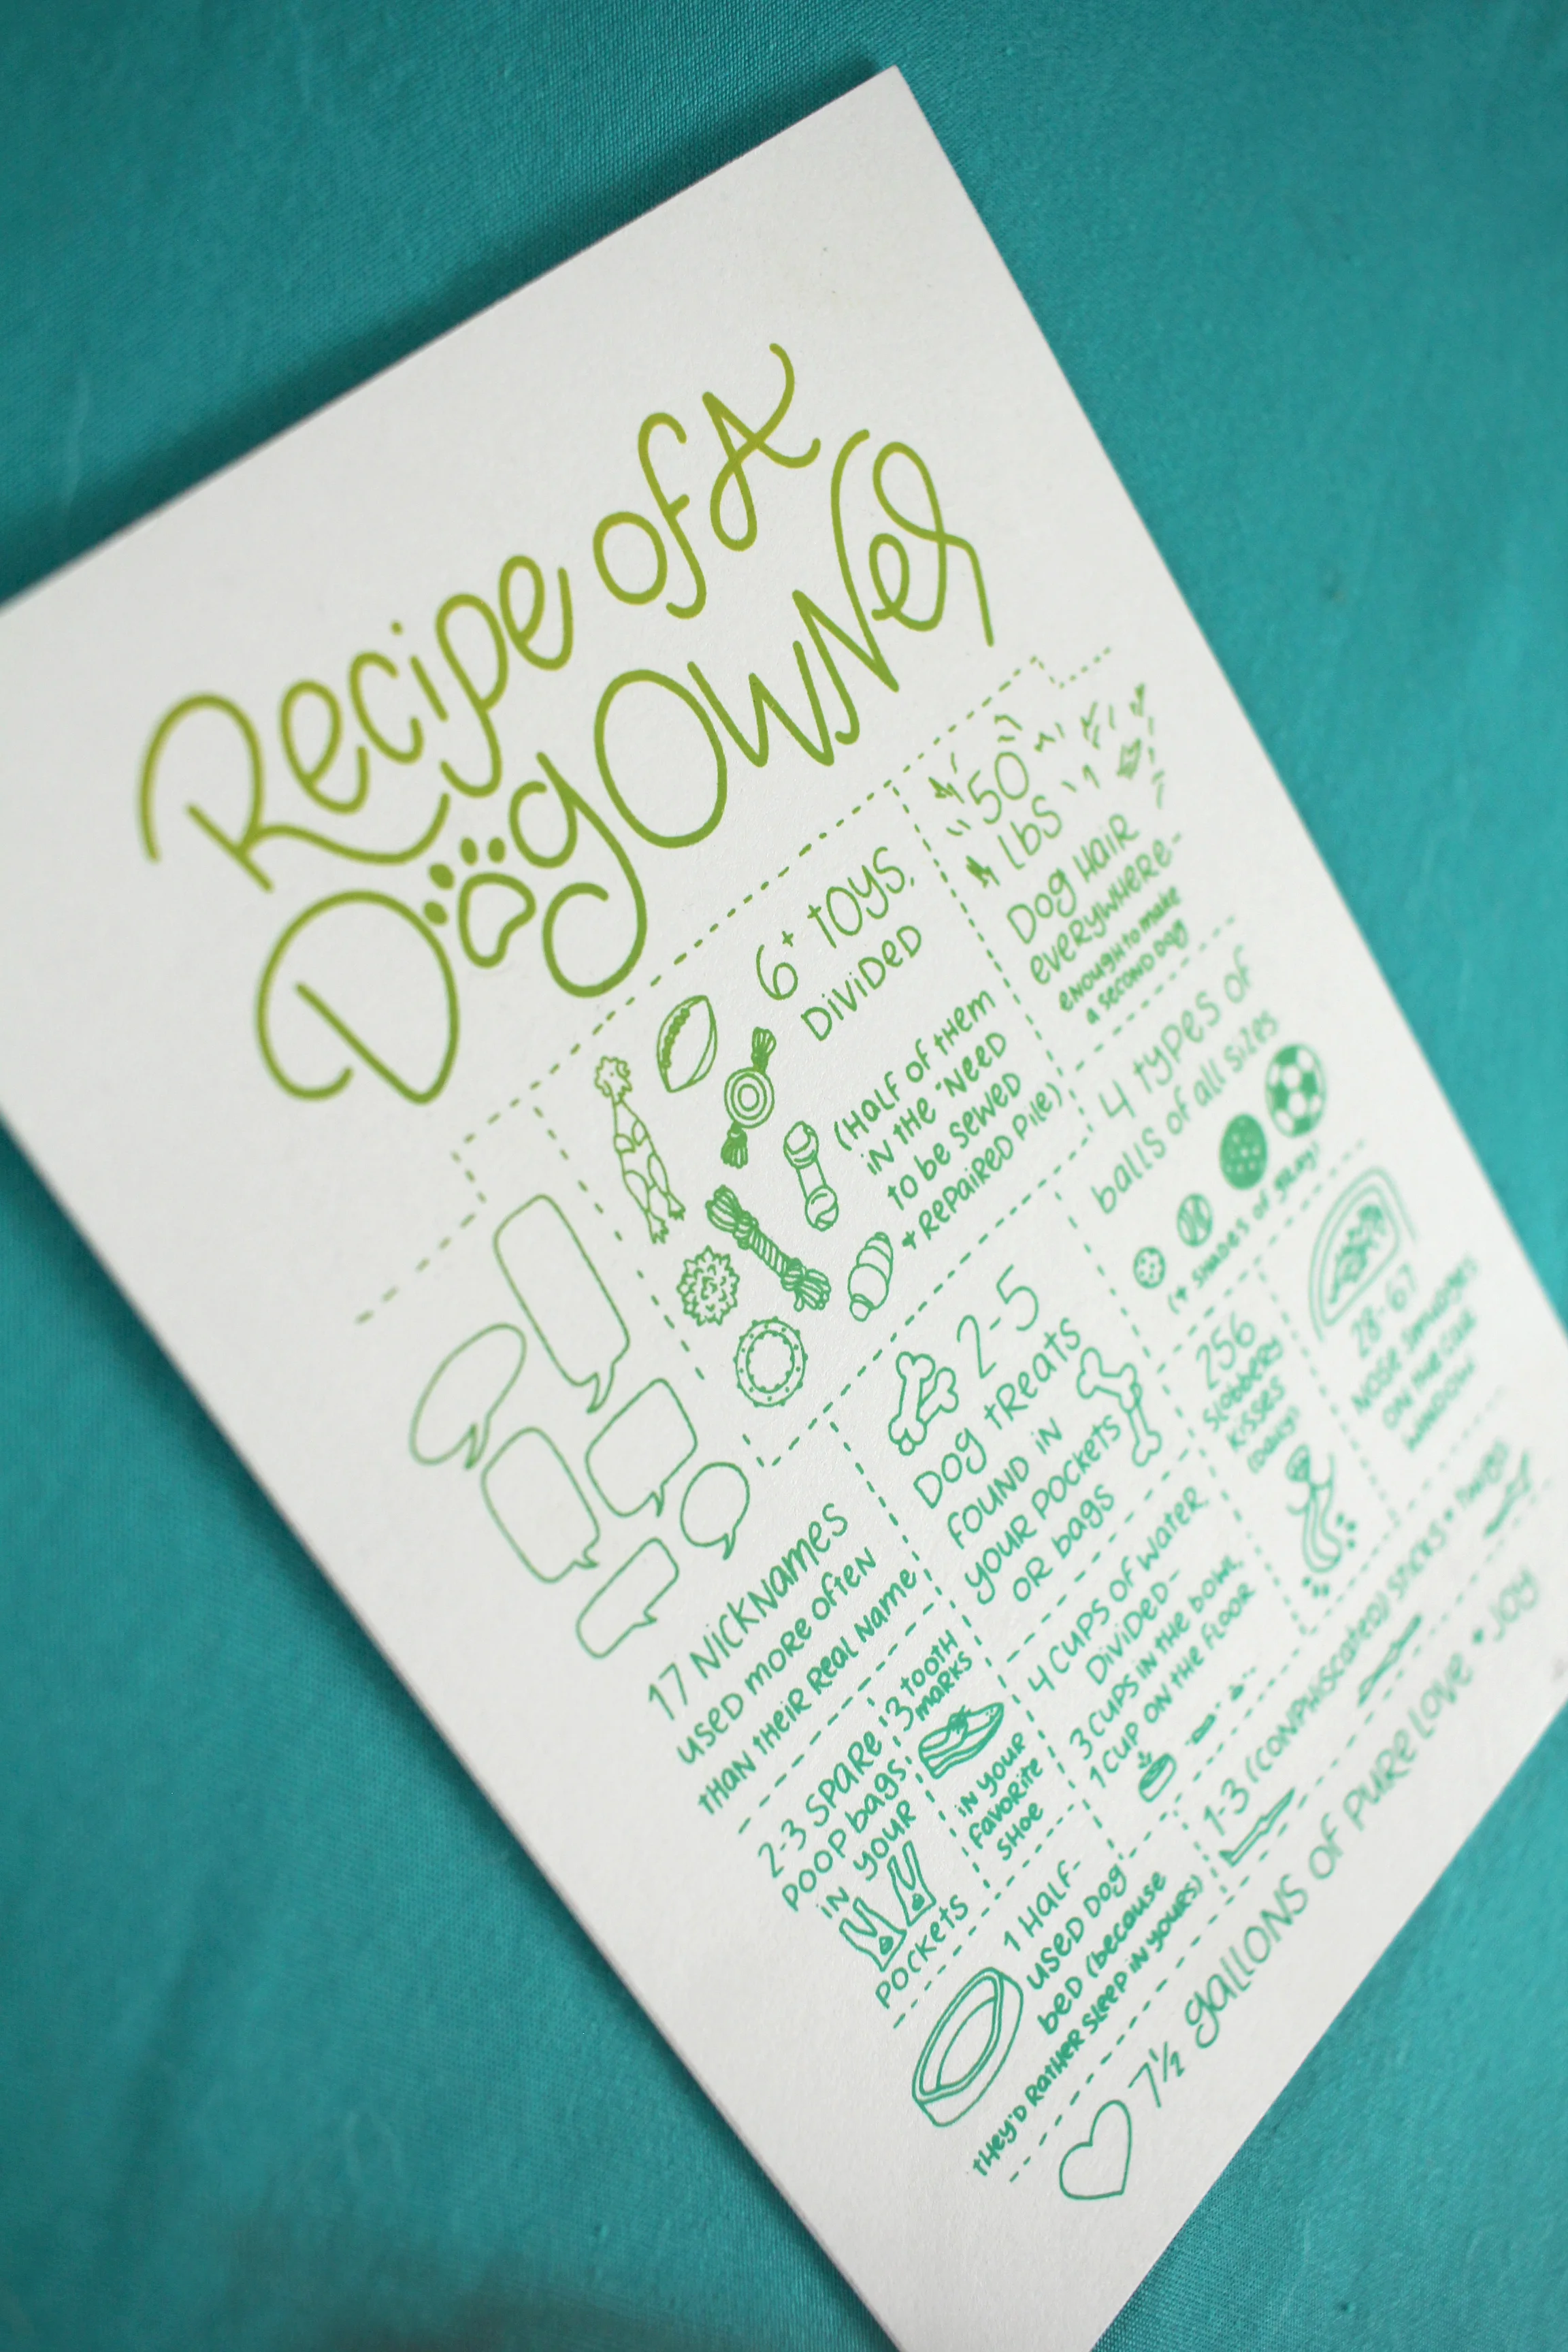 Recipe of A
Dog Owner
6+ toys,
Divided
(Half of them
in the "Need
to be sewed
+ Repaired Pile)
50
lbs
Dog Hair
everywhere-
enough to make
a second dog
17 Nicknames
used more often
than their Real Name
2-5
Dog treats
found in
your pockets
or bags
4 types of
balls of all sizes
(+ shades of gray)
256
slobbery
kisses
(daily)
28-67
nose smudges
on the car
window
2-3 spare
poop bags
in your
pockets
3 tooth
marks
in your
favorite
shoe
4 cups of water
Divided-
3 cups in the bowl,
1 cup on the floor
1 half-
used dog
bed (because
they'd rather sleep in yours)
1-3 (conphiscated) sticks + twigs
7 1/2 gallons of pure love + joy